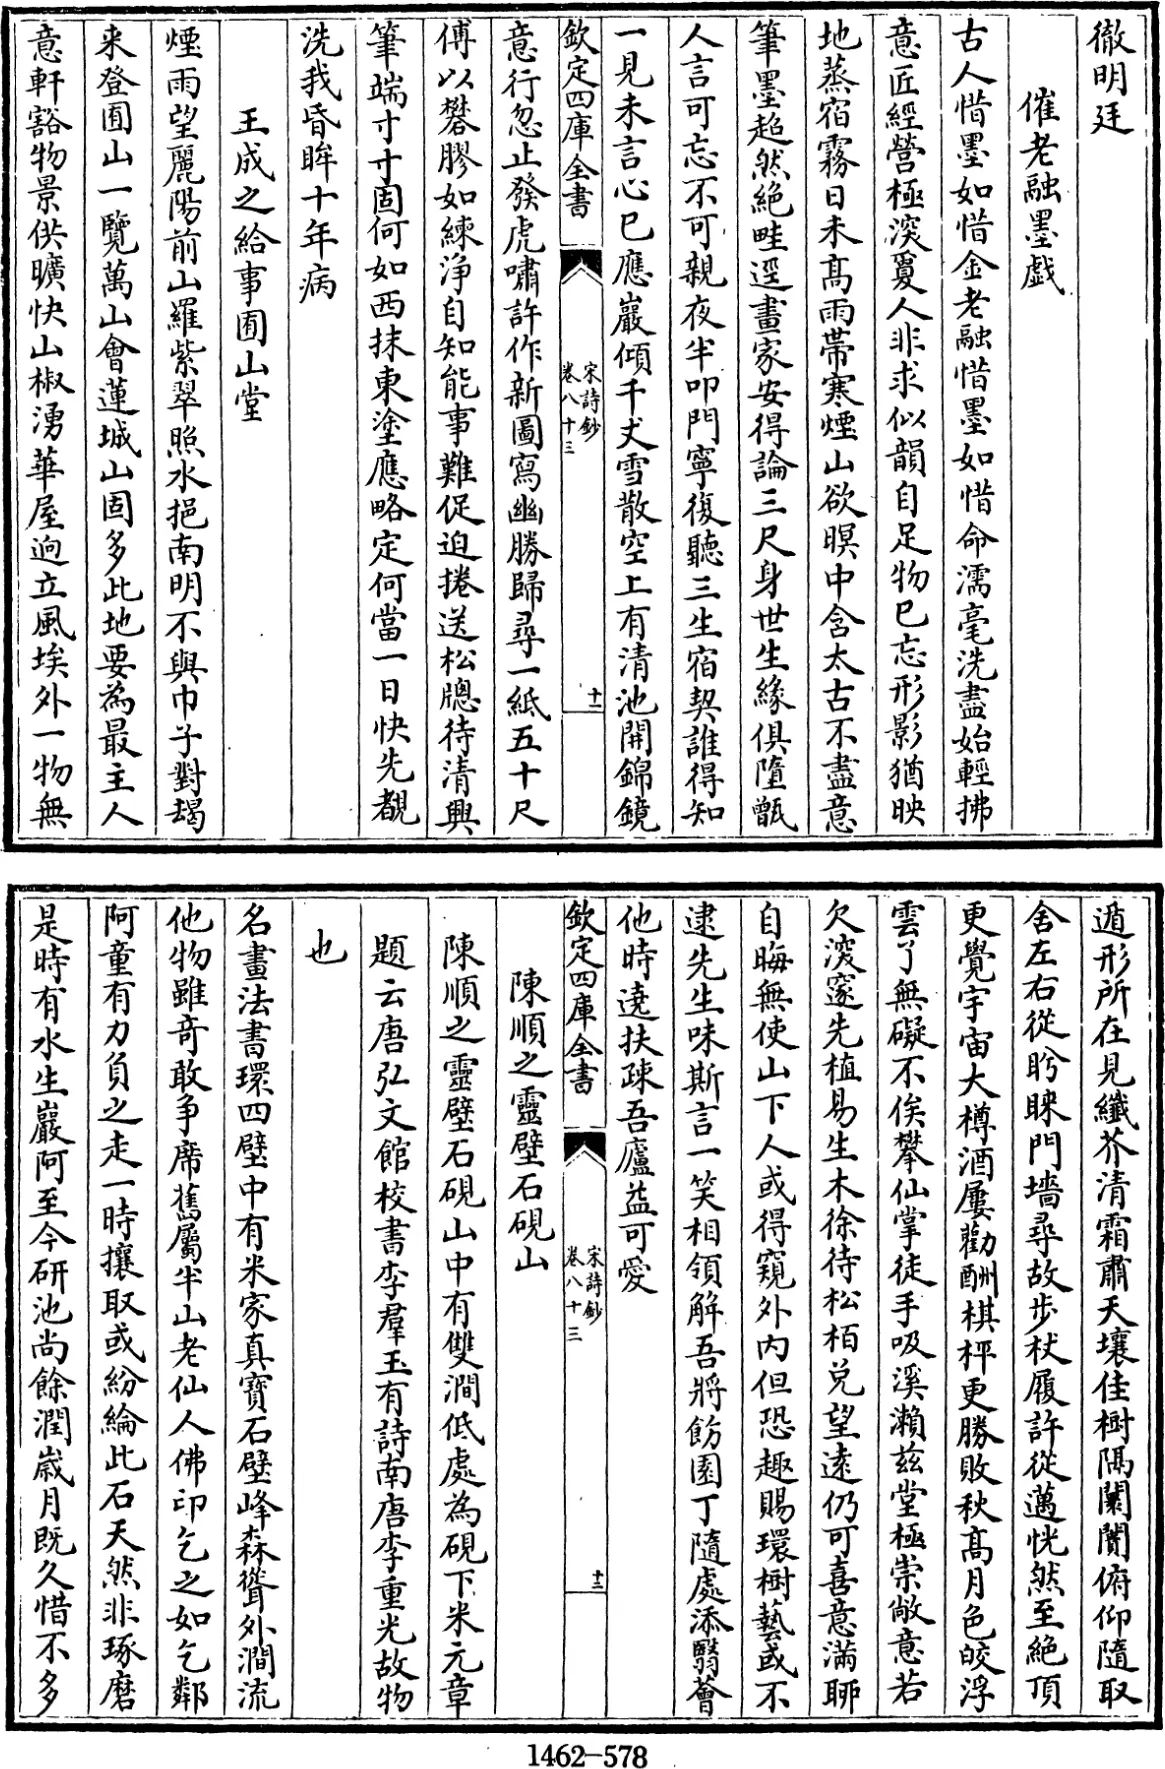 徹明廷
催老融墨戲
古人惜墨如惜金老融惜墨如惜命濡毫洗盡始輕拂
意匠經營極深夐人非求似韻自足物已忘形影猶映
地蒸宿霧日未高雨帶寒煙山欲暝中含太古不盡意
筆墨超然絶畦逕畫家安得論三尺身世生緣俱墮甑
人言可忘不可親夜半叩門寧復聽三生宿契誰得知
一見未言心已應巖傾千丈雪散空上有清池開錦鏡
欽定四庫全書
宋詩鈔
卷八十三
十二
意行忽止發虎嘯許作新圖寫幽勝歸尋一紙五十尺
傅以礬膠如練淨自知能事難促迫捲送松牕待清興
筆端寸寸固何如西抹東塗應略定何當一日快先覩
洗我昏眸十年病
王成之給事囿山堂
煙雨望麗陽前山羅紫翠照水挹南明不與巾子對朅
来登囿山一覽萬山會蓮城山固多此地要為最主人
意軒豁物景供曠快山椒湧華屋迥立風埃外一物無
遁形所在見纖芥清霜肅天壤佳樹隔闤闠俯仰隨取
舍左右從盻睞門墻尋故步杖履許從邁恍然至絶頂
更覺宇宙大樽酒屢勸酬棋枰更勝敗秋髙月色皎浮
雲了無礙不俟攀仙掌徒手吸溪瀨兹堂極崇敞意若
欠深窱先植易生木徐待松栢兌望遠仍可喜意滿聊
自晦無使山下人或得窺外内但恐趣賜環樹藝或不
逮先生味斯言一笑相領解吾將飭園丁隨處添翳薈
他時遶扶疎吾廬益可愛
欽定四庫全書
宋詩鈔
卷八十三
十三
陳順之靈壁石硯山
陳順之靈壁石硯山中有雙澗低處為硯下米元章
題云唐弘文館校書李羣玉有詩南唐李重光故物
也
名畫法書環四壁中有米家真寶石壁峰森聳外澗流
他物雖竒敢争席舊屬半山老仙人佛印乞之如乞鄰
阿童有力負之走一時攘取或紛綸此石天然非琢磨
是時有水生巖阿至今研池尚餘潤歲月既久惜不多
1462-578